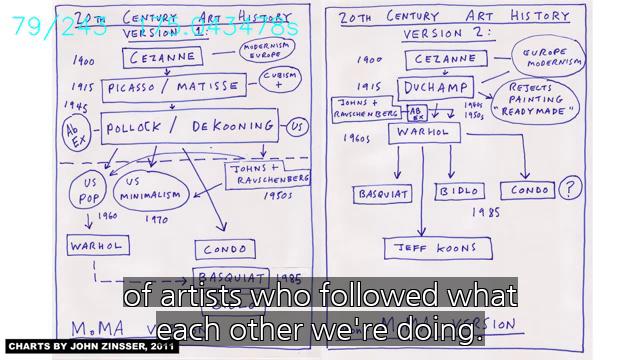 79/243 175.043478s
20TH CENTURY ART HISTORY
VERSION 1:
1900
CEZANNE
MODERNISM
EUROPE
1915
PICASSO / MATISSE
CUBISM
+
1945
Ab
Ex
POLLOCK / DEKOONING
US
JOHNS +
RAUSCHENBERG
1950s
US
POP
1960
US
MINIMALISM
1970
WARHOL
CONDO
BASQUIAT
1985
20TH CENTURY ART HISTORY
VERSION 2:
1900
CEZANNE
EUROPE
MODERNISM
1915
DUCHAMP
REJECTS
PAINTING
"READYMADE"
JOHNS +
RAUSCHENBERG
AB
EX
1940s
1950s
1960s
WARHOL
BASQUIAT
BIDLO
CONDO
?
1985
JEFF KOONS
MoMA
VERSION
of artists who followed what
each other we're doing.
CHARTS BY JOHN ZINSSER, 2011